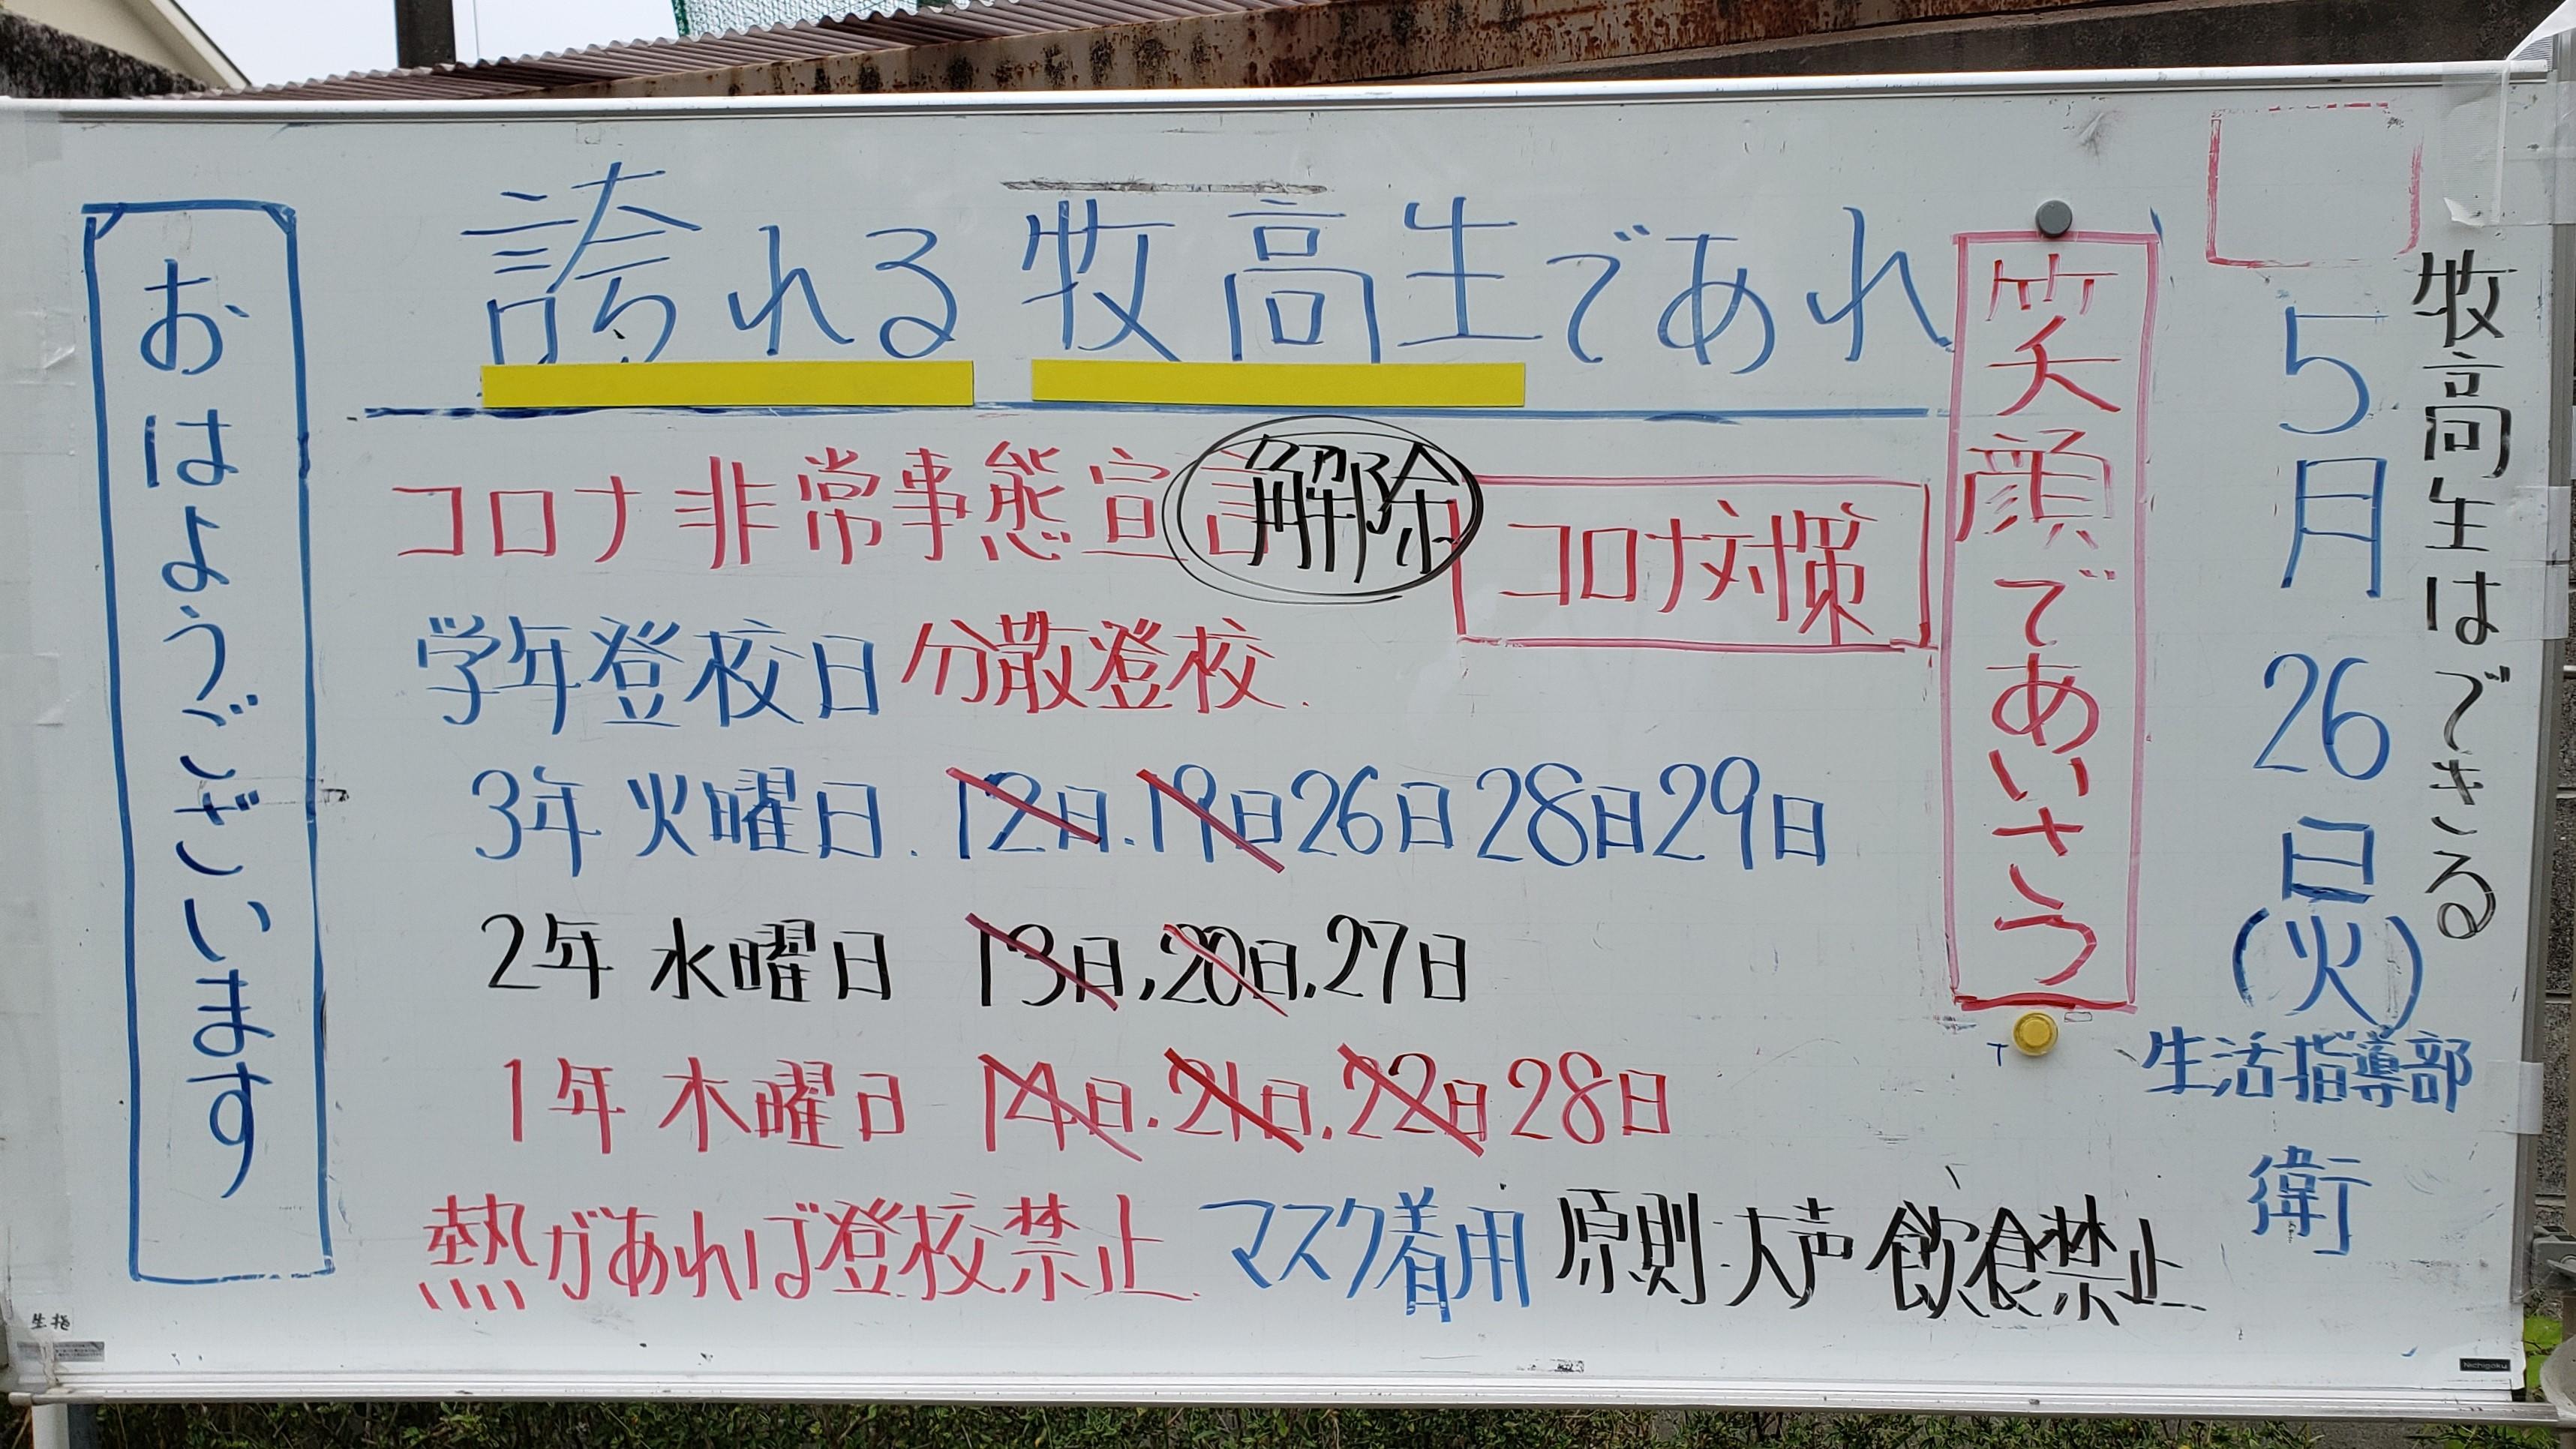 牧高生はできる
5月26日(火)
生活指導部
衛
笑顔であいさつ
誇れる牧高生であれ
コロナ非常事態宣言解除
コロナ対策
学年登校日 分散登校.
3年 火曜日. 12日.19日26日28日29日
2年 水曜日 13日,20日.27日
1年 木曜日 14日.21日.22日28日
熱があれば登校禁止. マスク着用 原則 大声 飲食禁止
おはようございます
生指
Nichigaku